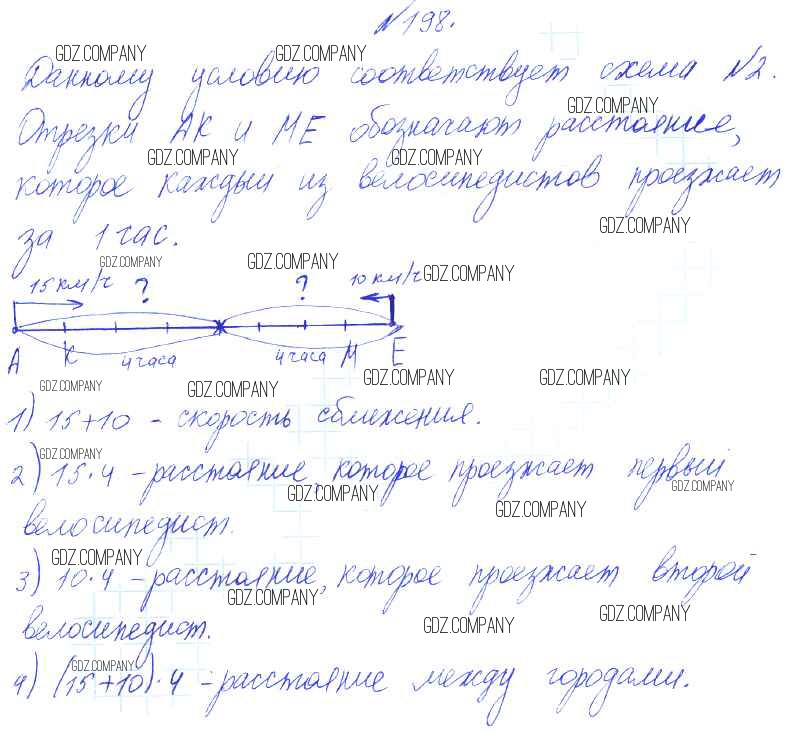 №198.
GDZ.COMPANY GDZ.COMPANY
Данному условию соответствует схема №2.
GDZ.COMPANY
Отрезки АК и МЕ обозначают расстояние,
GDZ.COMPANY GDZ.COMPANY
которое каждый из велосипедистов проезжает
GDZ.COMPANY
за 1 час.
GDZ.COMPANY GDZ.COMPANY GDZ.COMPANY
15 км/ч ? ? 10 км/ч
А К 4 часа 4 часа М Е
GDZ.COMPANY GDZ.COMPANY GDZ.COMPANY GDZ.COMPANY
1) 15+10 - скорость сближения.
GDZ.COMPANY
2) 15·4 - расстояние, которое проезжает первый
GDZ.COMPANY GDZ.COMPANY
GDZ.COMPANY
велосипедист.
GDZ.COMPANY
3) 10·4 - расстояние, которое проезжает второй
GDZ.COMPANY GDZ.COMPANY
велосипедист.
GDZ.COMPANY
GDZ.COMPANY
4) (15+10)·4 - расстояние между городами.